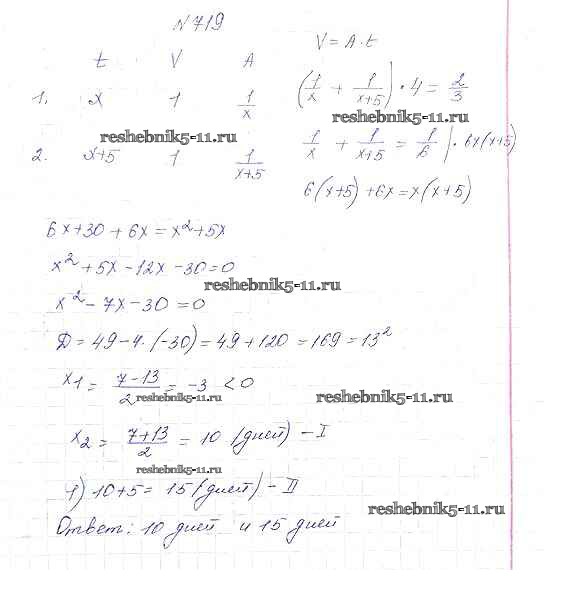 № 719
t V A
V = A · t
1. x 1 1/x
(1/x + 1/(x+5)) · 4 = 2/3
reshebnik5-11.ru
reshebnik5-11.ru
2. x+5 1 1/(x+5)
1/x + 1/(x+5) = 1/6 | · 6x(x+5)
6(x+5) + 6x = x(x+5)
6x+30 + 6x = x² + 5x
x² + 5x - 12x - 30 = 0
reshebnik5-11.ru
x² - 7x - 30 = 0
Д = 49 - 4 · (-30) = 49 + 120 = 169 = 13²
x1 = (7-13)/2 = -3 < 0
reshebnik5-11.ru
reshebnik5-11.ru
x2 = (7+13)/2 = 10 (дней) - I
reshebnik5-11.ru
1) 10+5 = 15 (дней) - II
reshebnik5-11.ru
Ответ: 10 дней и 15 дней